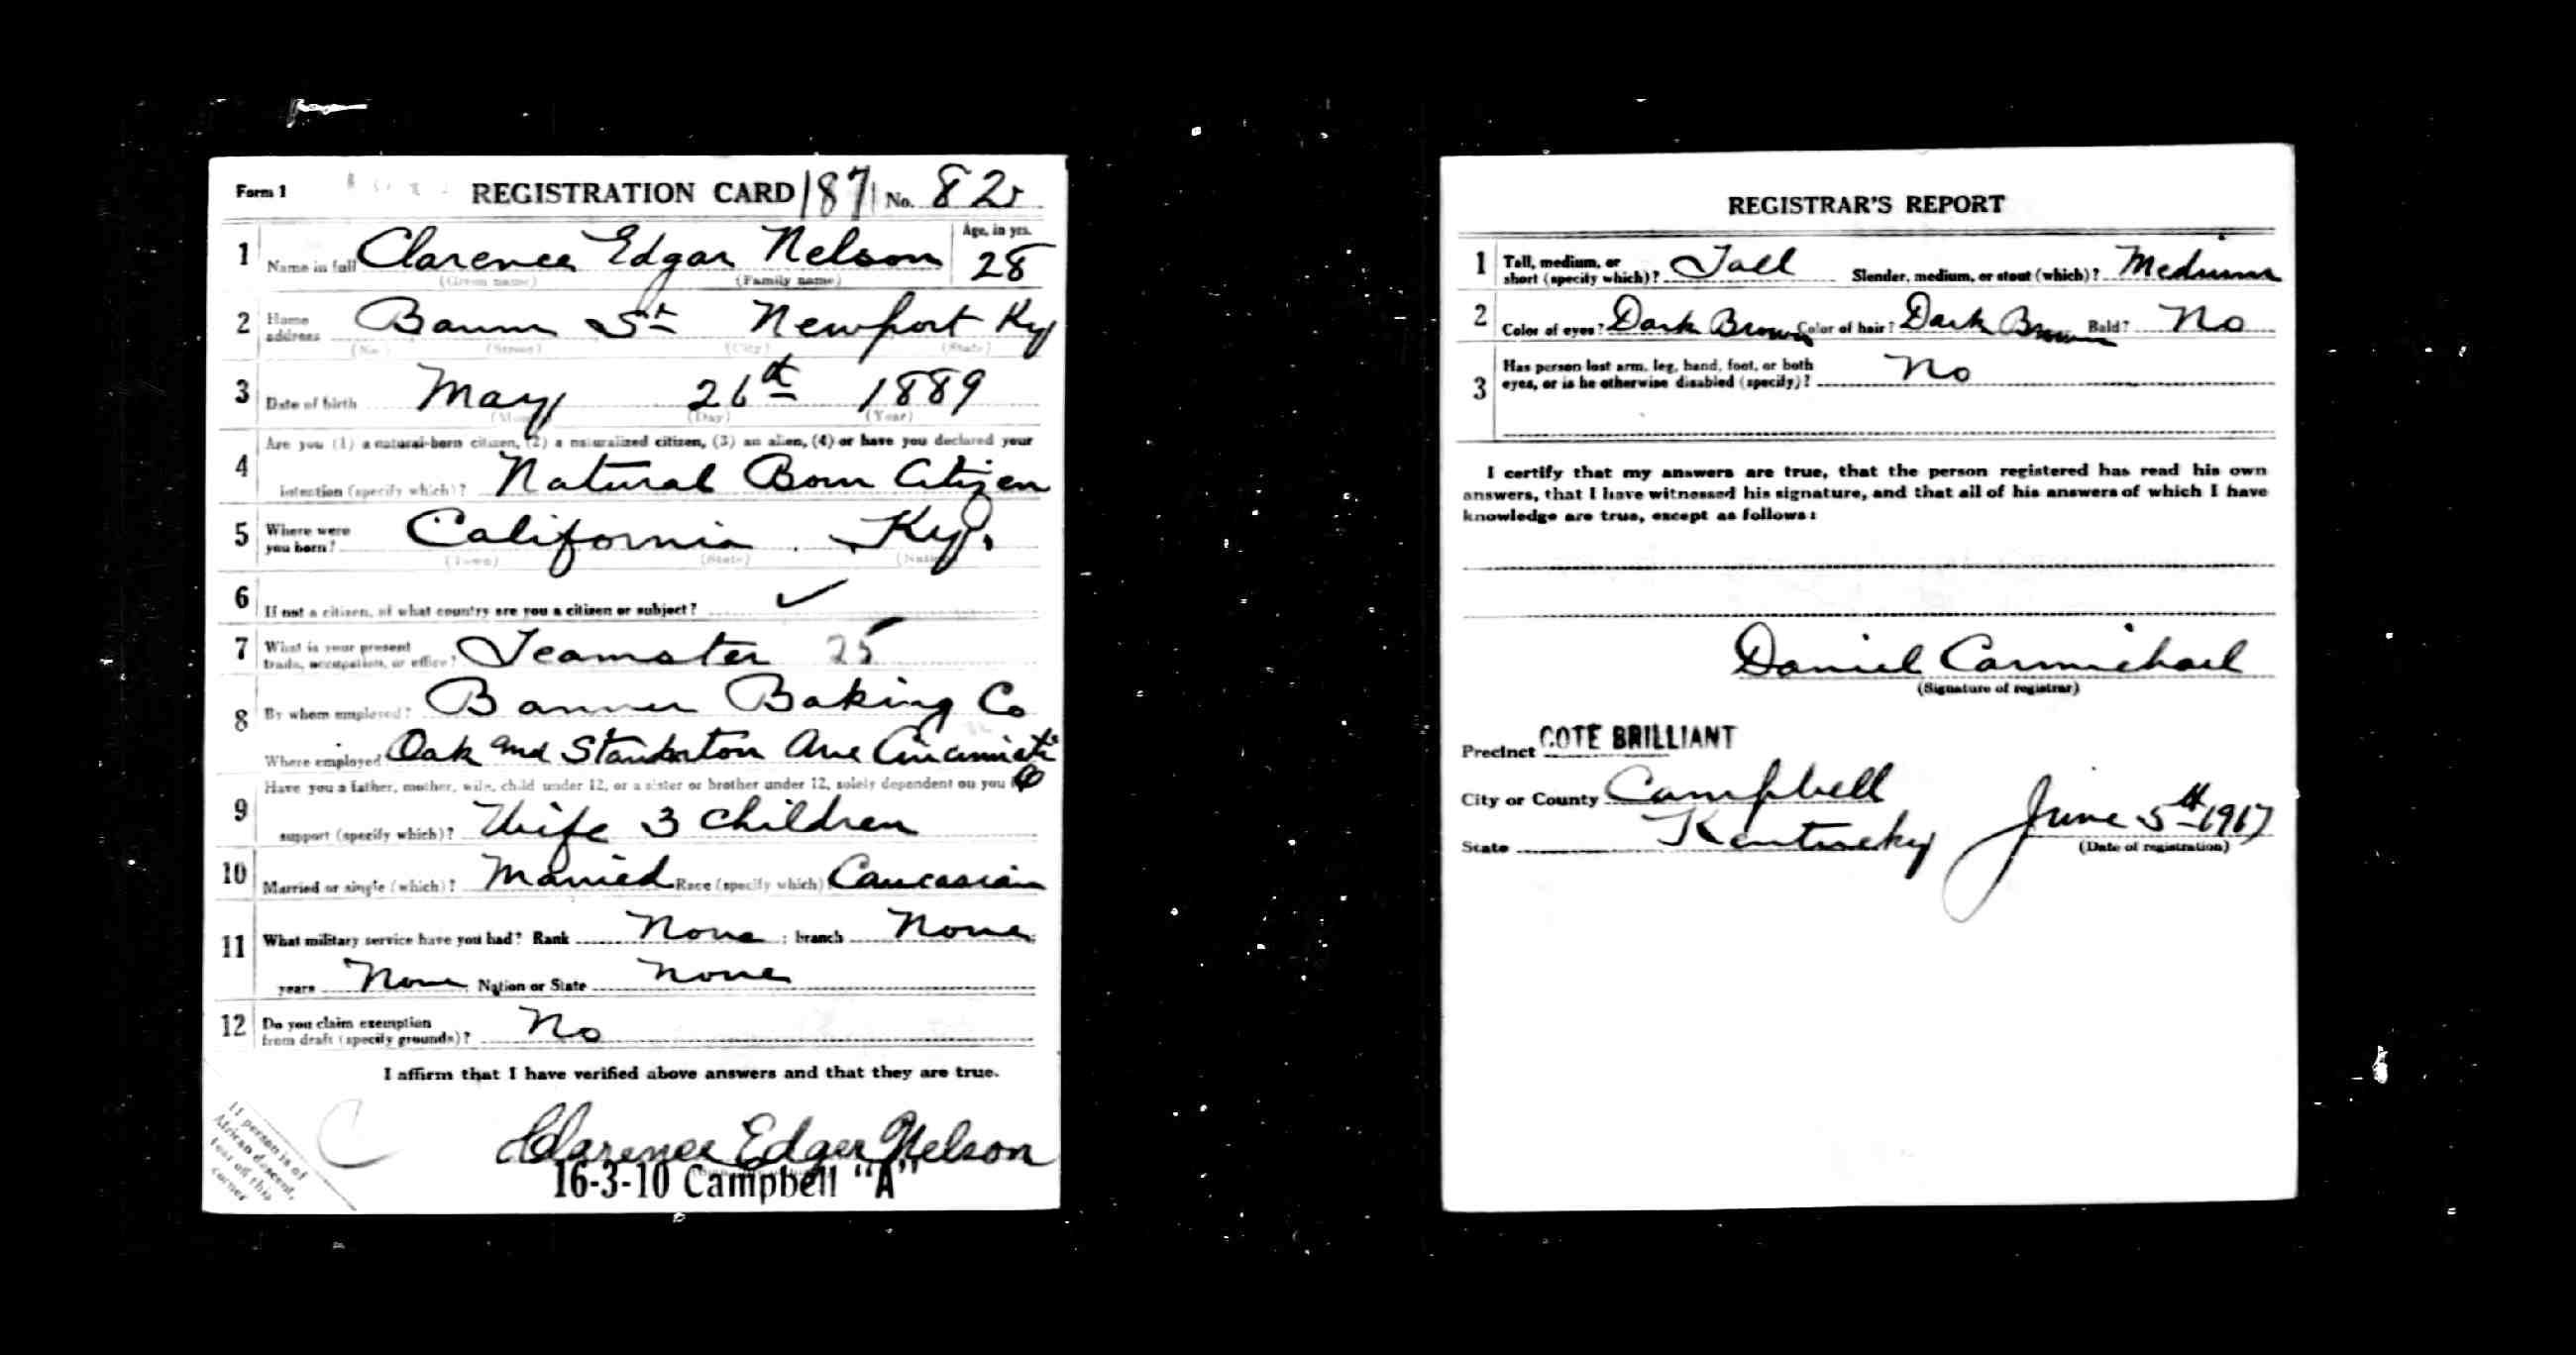 Form 1 REGISTRATION CARD 187 No. 82
1 Name in full Clarence Edgar Nelson Age, in yrs. 28
(Given name) (Family name)
2 Home address Baum St Newport Ky
(No.) (Street) (City) (State)
3 Date of birth May 26th 1889
(Month) (Day) (Year)
4 Are you (1) a natural-born citizen, (2) a naturalized citizen, (3) an alien, (4) or have you declared your
intention (specify which)? Natural Born Citizen
5 Where were you born? California Ky.
(Town) (State) (Nation)
6 If not a citizen, of what country are you a citizen or subject? ✓
7 What is your present trade, occupation, or office? Teamster 25
8 By whom employed? Banner Baking Co
Where employed Oak and Ave Cincinnati O
9 Have you a father, mother, wife, child under 12, or a sister or brother under 12, solely dependent on you for
support (specify which)? Wife 3 children
10 Married or single (which)? Married Race (specify which) Caucasian
11 What military service have you had? Rank None ; branch None ;
years None Nation or State none
12 Do you claim exemption from draft (specify grounds)? No
I affirm that I have verified above answers and that they are true.
Clarence Edger Nelson
16-3-10 Campbell "A"
If person is of
African descent,
tear off this
corner
C
REGISTRAR'S REPORT
1 Tall, medium, or short (specify which)? Tall Slender, medium, or stout (which)? Medium
2 Color of eyes? Dark Brown Color of hair? Dark Brown Bald? No
3 Has person lost arm, leg, hand, foot, or both
eyes, or is he otherwise disabled (specify)? No
I certify that my answers are true, that the person registered has read his own
answers, that I have witnessed his signature, and that all of his answers of which I have
knowledge are true, except as follows:
Daniel Carmichael
(Signature of registrar)
Precinct COTE BRILLIANT
City or County Campbell
State Kentucky June 5th 1917
(Date of registration)